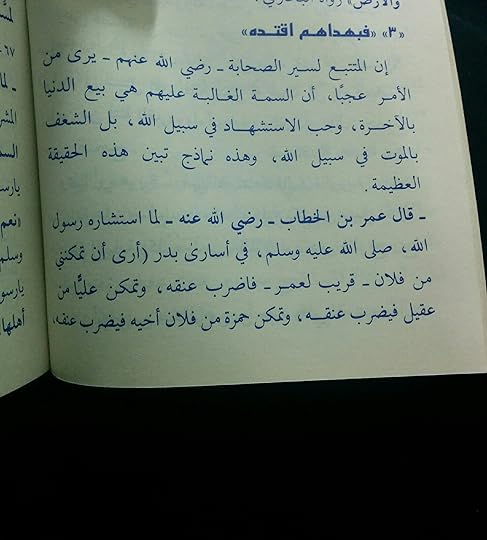 والأرض» رواه البخاري.
«٣» «فبهداهم اقتده»
إن المتتبع لسير الصحابة ـ رضي الله عنهم ـ يرى من
الأمر عجبًا، أن السمة الغالبة عليهم هي بيع الدنيا
بالآخرة، وحب الاستشهاد في سبيل الله، بل الشغف
بالموت في سبيل الله، وهذه نماذج تبين هذه الحقيقة
العظيمة.
ـ قال عمر بن الخطاب ـ رضي الله عنه ـ لما استشاره رسول
الله، صلى الله عليه وسلم، في أسارىٰ بدر (أرى أن تمكنني
من فلان ـ قريب لعمر ـ فاضرب عنقه، وتمكن عليًّا من
عقيل فيضرب عنقه، وتمكن حمزة من فلان أخيه فيضرب عنقه،
٦٧
ـ لما
«نعم
وسلم
يارسو
أهلها